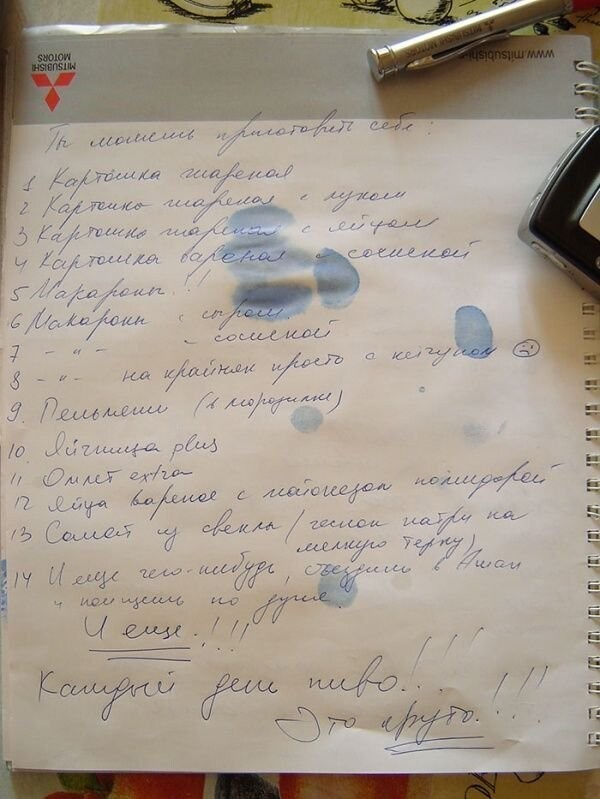 MITSUBISHI
MOTORS
www.mitsubishi-
MITSUBISHI MOTORS
Ты можешь приготовить себе:
1 Картошка жареная
2 Картошка жареная с луком
3 Картошка жареная с яйцом
4 Картошка вареная с сосиской
5 Макароны!!
6 Макароны с сыром
7 - " - с сосиской
8 - " - на крайняк просто с кетчупом ☹
9. Пельмени (в морозилке)
10. Яичница plus
11 Омлет extra
12 Яйца вареное с майонезом помидорой
13 Салат из свеклы (чеснок натри на
мелкую терку)
14 И еще чего-нибудь, съездишь в Ашан
и поищешь по душе.
И еще!!!!
Каждый день пиво!!!
Это круто!!!!